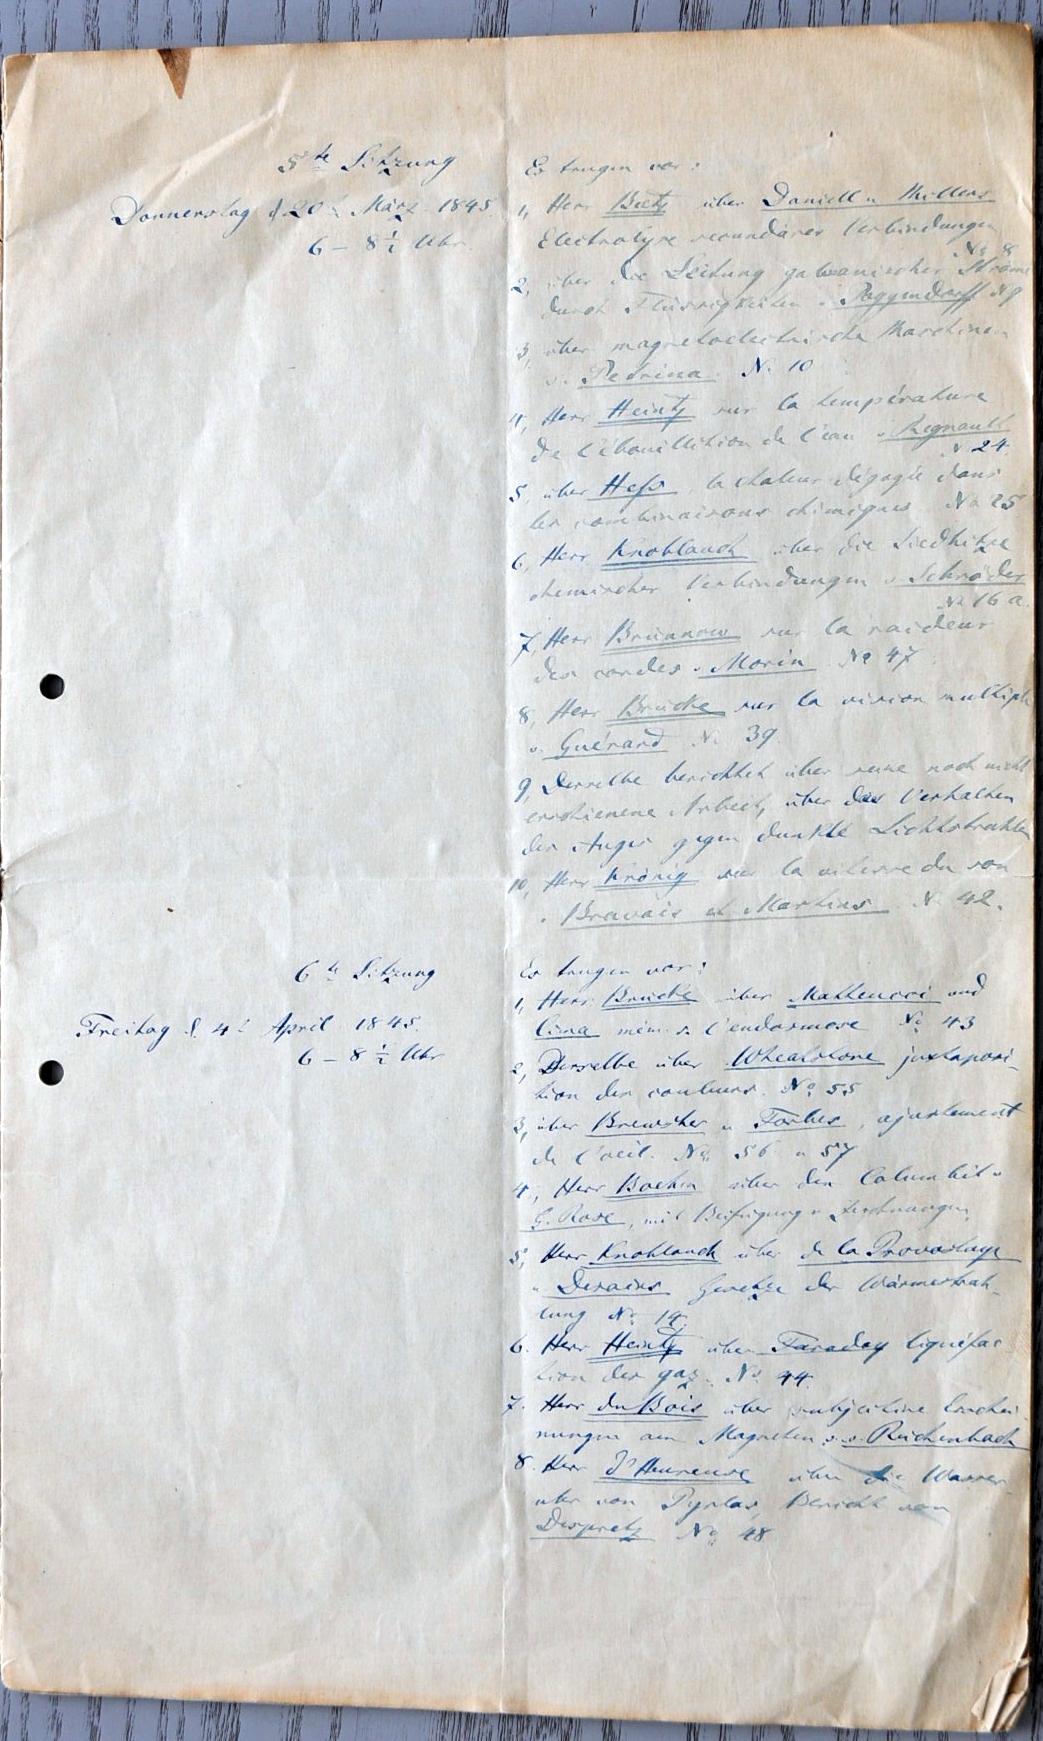 5te Sitzung
Donnerstag d 20t März 1845.
6 – 8½ Uhr
Es trugen vor:
1, Herr Beetz über Daniell u Millers
Electrolyse secundärer Verbindungen
No 8
2, über die Leitung galvanischer Ströme
durch Flüssigkeiten v Poggendorff N 9
3, über magnetoelectrische Maschinen
v. Petrina. N. 10
4, Herr Heintz sur la température
de l'ébouillition de l'eau v Regnault
N. 24.
5, über Hess, la chaleur dégagée dans
les combinaisons chimiques No 25
6, Herr Knoblauch über die Siedhitze
chemischer Verbindungen v Schröder
No 16 a.
7, Herr Brünnow sur la raideur
des cordes v. Morin No 47
8, Herr Brücke sur la vision multiple
v. Guérard N. 39.
9, Derselbe berichtet über seine noch nicht
erschienene Arbeit, über das Verhalten
des Auges gegen dunkle Lichtstrahlen
10, Herr Krönig sur la vitesse du son
v. Bravais et Martins. N. 42.
6te Sitzung
Freitag d. 4t April 1845.
6 – 8½ Uhr
Es trugen vor:
1, Herr Brücke über Matteucci und
Cima mém. s. l'endosmose No 43
2, Derselbe über Wheatstone juxtaposi-
tion des couleurs. No 55
3, über Brewster u Forbes, ajustement
de l'oeil. No. 56 u 57
4, Herr Boehm über den Columbit v
G. Rose, mit Beifügung v Zeichnungen
5, Herr Knoblauch über de la Provostaye
u Desains Gesetze der Wärmestrah-
lung No 14.
6. Herr Heintz über Faraday liquéfac
tion des gaz. No. 44.
7. Herr du Bois über subjective Erschei-
nungen am Magneten v. Reichenbach
8. Herr d'Heureuse über die Wasser-
uhr von Pyrlas, Bericht von
Despretz No 48